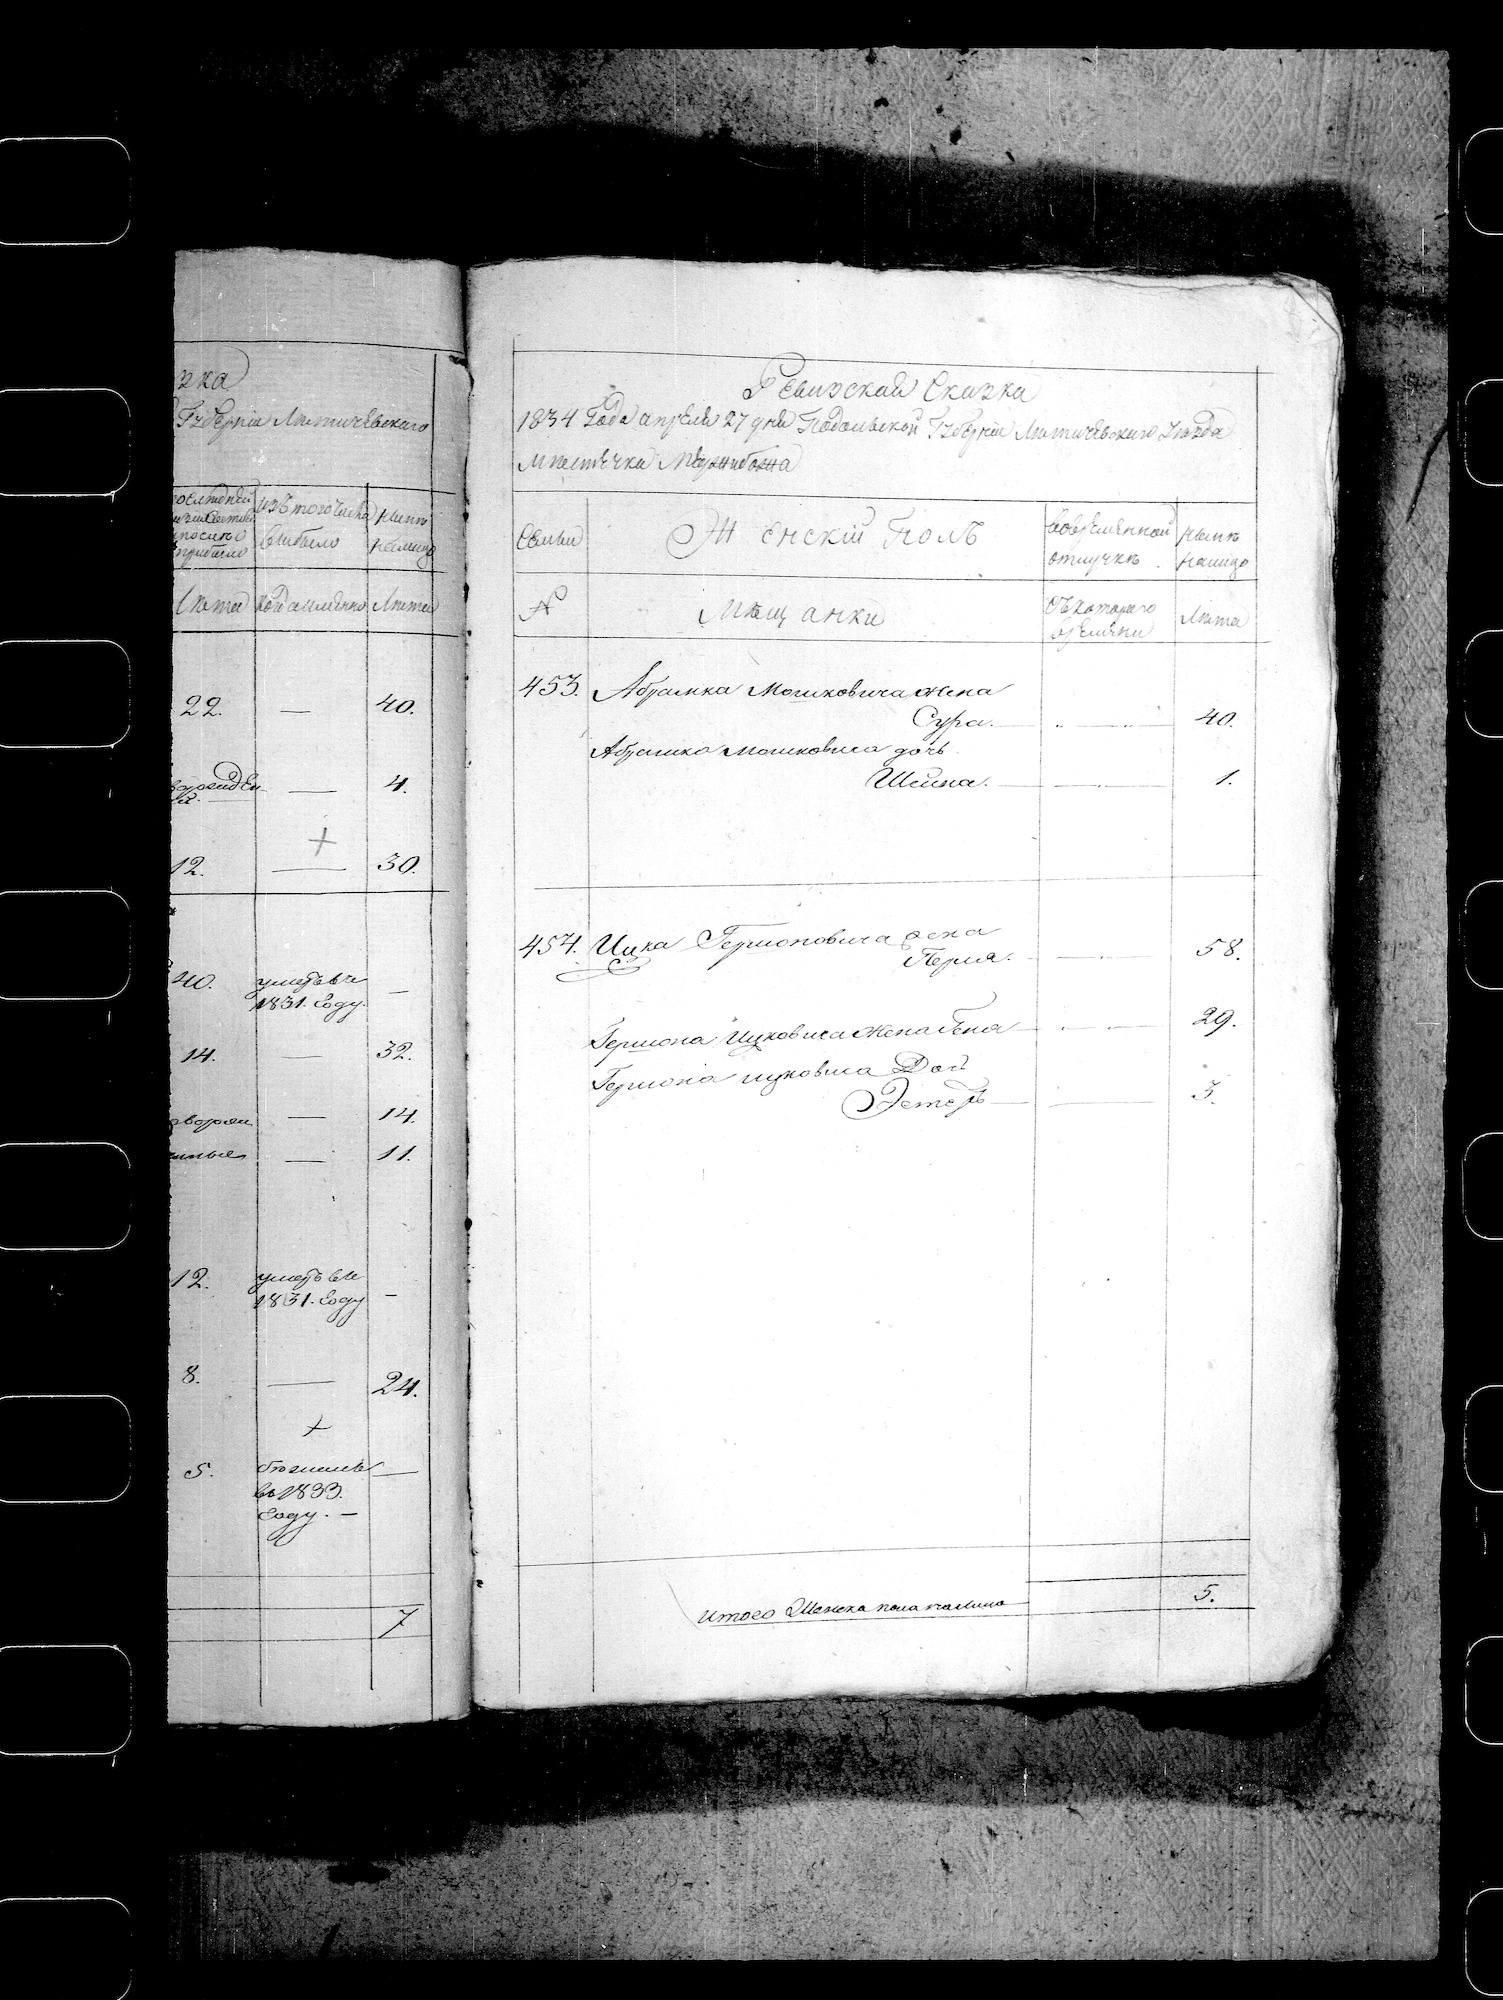 зка
Губерніи Литичевскаго
последней
прибыло
изъ того числа
выбыло
ныне
налицо
Лета
когда имянно
Лета
22. — 40.
— 4.
+
12. — 30.
40. умеръ въ
1831. Году. —
14. — 32.
— 14.
— 11.
12. умеръ въ
1831. Году —
8. — 24.
+
5. —
въ 1833.
Году. —
7
Ревизская Сказка
1834 Года апреля 27 дня Подольской Губерніи Литичевскаго Уезда
Местечка Межибожа
Семьи
Женскій Полъ
Во временной
отлучке
ныне
налицо
№
Мещанки
Съ котораго
времени
Лета
453. Абрамка Мошковича жена
Сура. — 40.
Абрамка Мошковича дочь
Шейна. — 1.
454. Ицка Гершоновича жена
Перля. — 58.
Гершона Ицковича жена Гена — 29.
Гершона Ицковича Дочь
Эстеръ — 3.
Итого Женска пола налицо 5.